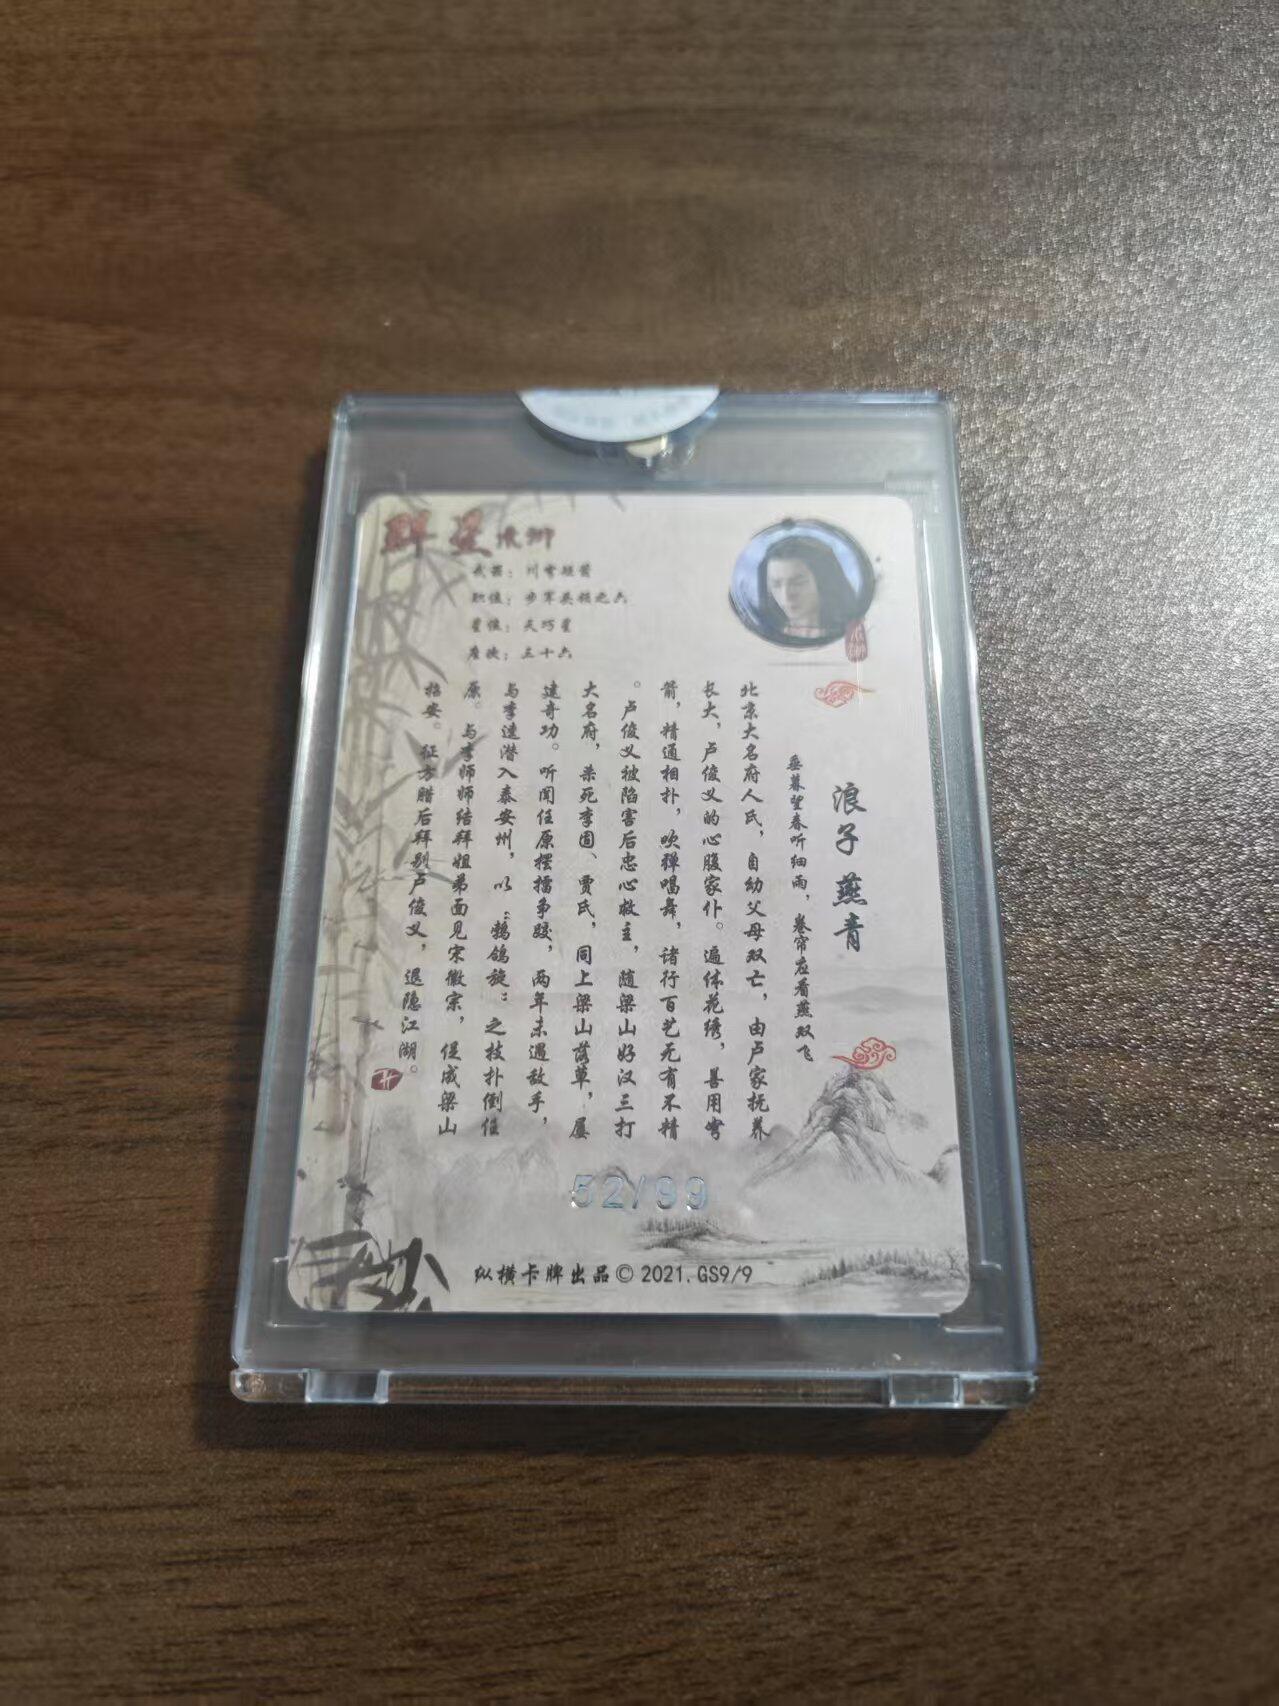 群星水浒
武器：川弩短箭
职位：步军头领之六
星位：天巧星
座次：三十六
浪子燕青
垂暮望春听细雨，卷帘应看燕双飞
北京大名府人氏，自幼父母双亡，由卢家抚养
长大，卢俊义的心腹家仆。遍体花绣，善用弩
箭，精通相扑，吹弹唱舞，诸行百艺无有不精
。卢俊义被陷害后忠心救主，随梁山好汉三打
大名府，杀死李固、贾氏，同上梁山落草，屡
建奇功。听闻任原摆擂争跤，两年未遇敌手，
与李逵潜入泰安州，以“鹁鸽旋”之技扑倒任
原。与李师师结拜姐弟面见宋徽宗，促成梁山
招安。征方腊后拜别卢俊义，退隐江湖。
52/99
纵横卡牌出品©2021.GS9/9